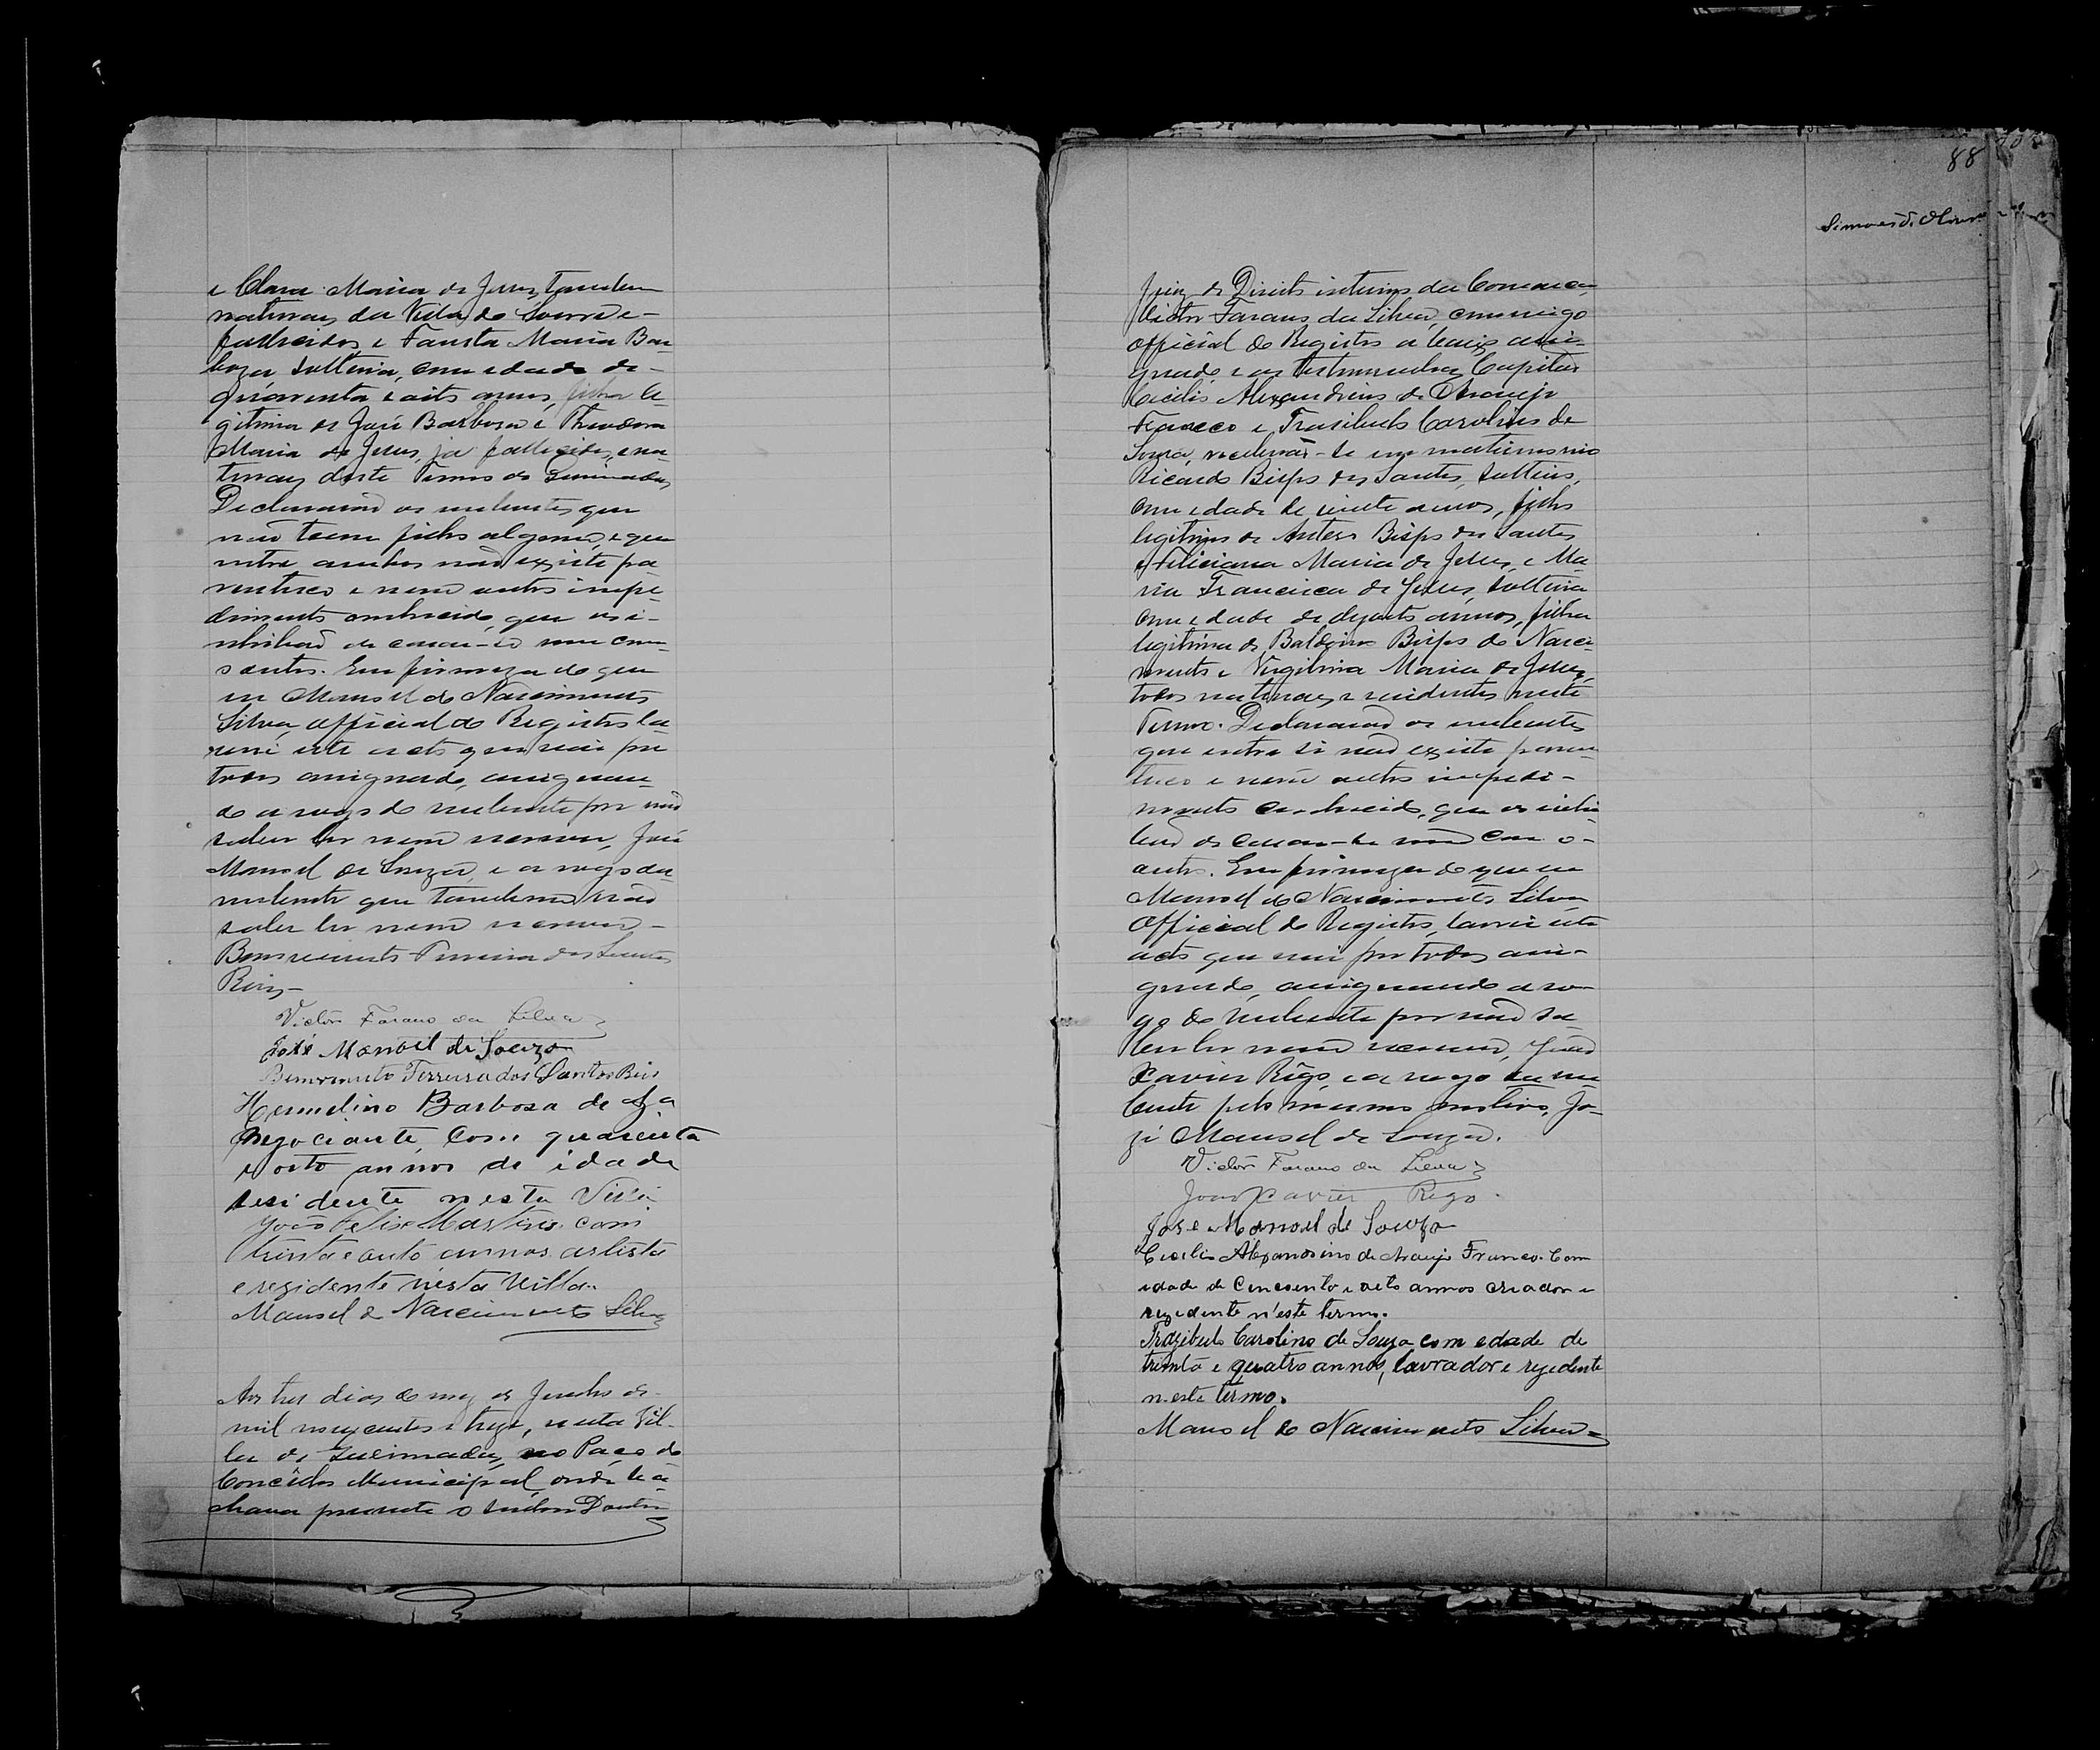 e Clara Maria de Jesus, tambem
naturaes da Villa do Soure e
fallecidos e Fausta Maria Bar-
boza solteira, com edade de
quarenta e oito annos, filha le-
gitima de José Barboza e Theodora
Maria de Jesus, já fallecidos, e na-
turaes deste Termo de Queimadas,
Declararaõ os nubentes que
naõ teem filhos algons, e que
entre ambos naõ existe pa-
rentisco e nem outro impe-
dimento conhecido, que os i-
nhibaõ de casar-se um com
o outro. Em firmeza do que
eu Manoel do Nascimento
Silva, official do Registro la-
vrei este acto que vai por
todos assignado, assignan-
do a rogo do nubente por naõ
saber ler nem escrever, José
Manoel de Souza, e a rogo da
nubente que tambem naõ
sabe ler nem escrever
Bemvenuto Ferreira dos Santos
Reis
Victor Farano da Silva
José Manoel de Souza
Bemvenuto Ferreira dos Santos Reis
Hermelino Barbosa de
negociante, Com quarenta
e oito annos de idade
residente nesta Villa
João Felix Martins com
trinta e outo annos artista
e rezidente nesta Villa.
Manoel do Nascimento Silva
Aos tres dias do mez de Junho de
mil novecentos e treze, nesta Vil-
la de Queimadas, no Paço do
Concelho Municipal, onde se a-
chava presente o senhor Doutor
88
Simões d. Olivra
Juiz de Direito interino da Comarca
Victor Farano da Silva, commigo
official do Registro abaixo assi-
gnado e as testemunhas Capitão
Cicilio Alexandrino de Araujo
Franco e Trasibulo Carolino de
Souza, receberaõ-se em matrimonio
Ricardo Bispo dos Santos, solteiro,
com edade de vinte annos, filho
legitimo de Antero Bispo dos Santos
e Feliciana Maria de Jesus, e Ma-
ria Francisca de Jesus, solteira
com edade de dezoito annos, filha
legitima de Baldoino Bispo do Nasci-
mento e Virgilina Maria de Jesus,
todos naturaes e residentes neste
Termo. Declararaõ os nubentes
que entre si naõ existe paren-
tisco e nem outro impedi-
mento conhecido, que os inhi-
baõ de casar-se um com o
outro. Em firmeza do que eu
Manoel do Nascimento Silva
Official do Registro, lavrei este
acto que vai por todos assi-
gnado, assignando a ro-
go do nubente por naõ sa-
ber ler nem escrever, João
Xavier Rego, e a rogo da nu-
bente pelo mesmo motivo, Jo-
zé Manoel de Souza.
Victor Farano da Silva
Joao Xavier Rego
José Manoel de Souza
Cicilio Alexandrino de Araujo Franco. Com
idade de Cincoento e oito annos criador e
rezidente n'este termo.
Trazibulo Carolino de Souza com edade de
trinta e quatro annos, lavrador e rezidente
neste termo.
Manoel do Nascimento Silva